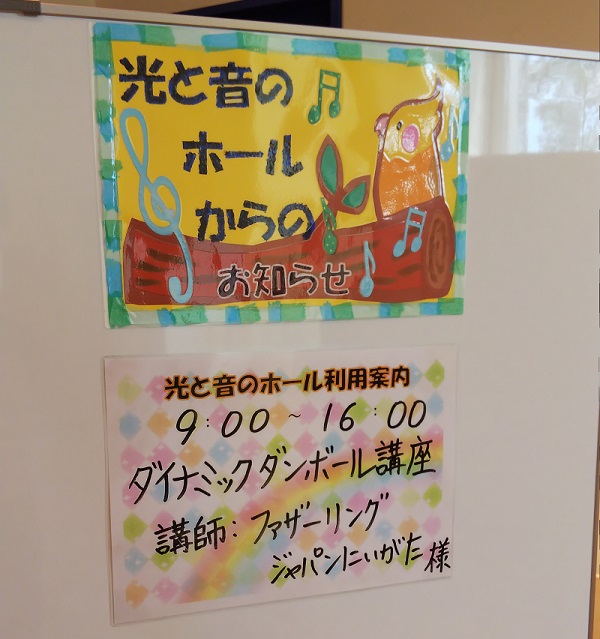 光と音の
ホール
からの
お知らせ
光と音のホール利用案内
9:00～16:00
ダイナミックダンボール講座
講師:ファザーリング
ジャパンにいがた様